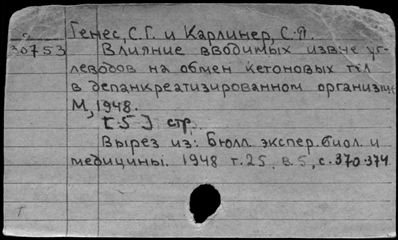 Генес, С.Г. и Карлинер, С.Я.
с
30753
Влияние вводимых извне уг-
леводов на обмен кетоновых тел
в депанкреатизированном организме
М, 1948.
[5] стр.
Вырез из: Бюлл. экспер. биол. и
медицины. 1948 т.25, в.5, с.370-374